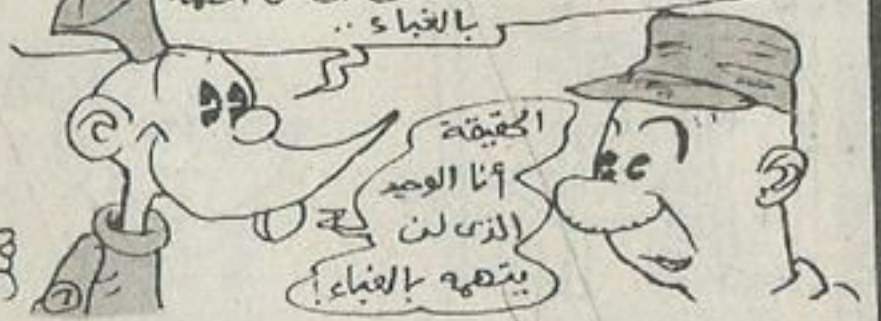 بالغباء ..
الحقيقة
أنا الوحيد
الذى لن
يتهمه بالغباء!